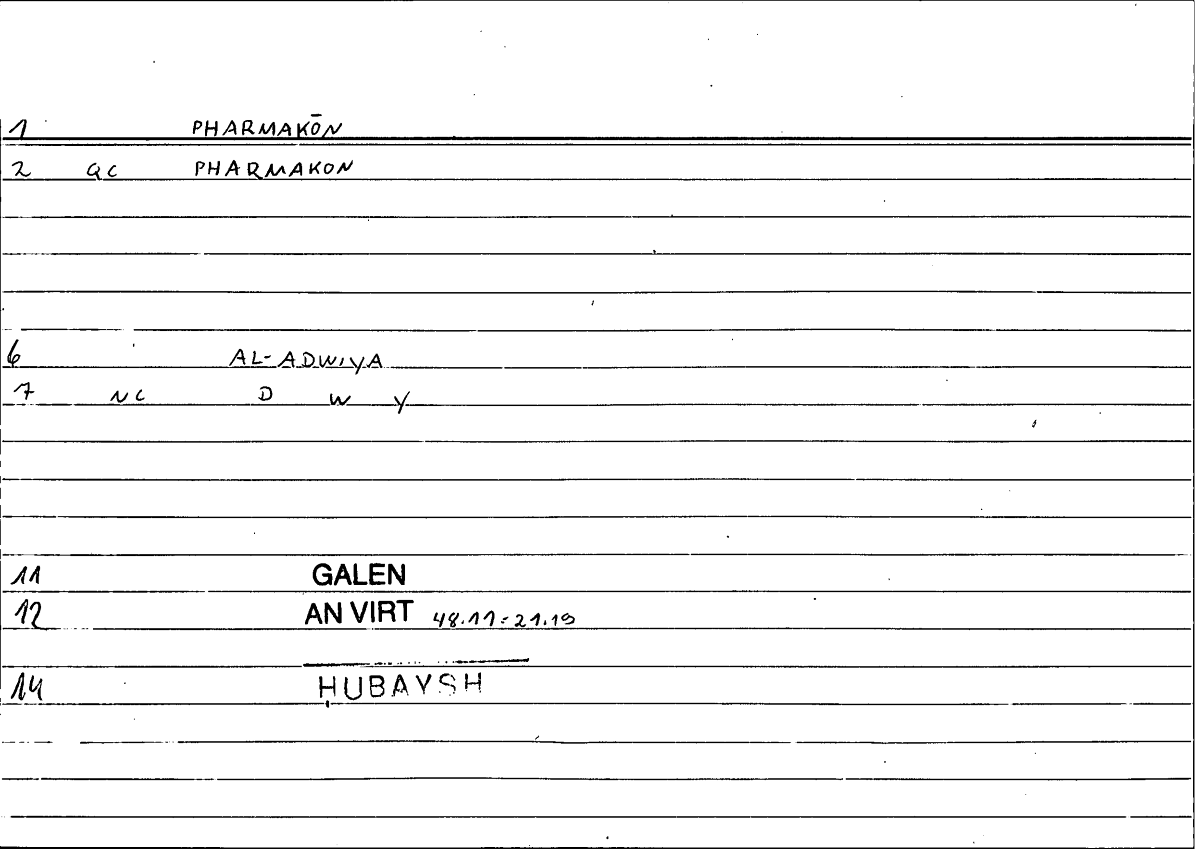 1 PHARMAKŌN
2 QC PHARMAKON
6 AL-ADWIYA
7 NC D W Y
11 GALEN
12 AN VIRT 48.11:21.19
14 ḤUBAYSH